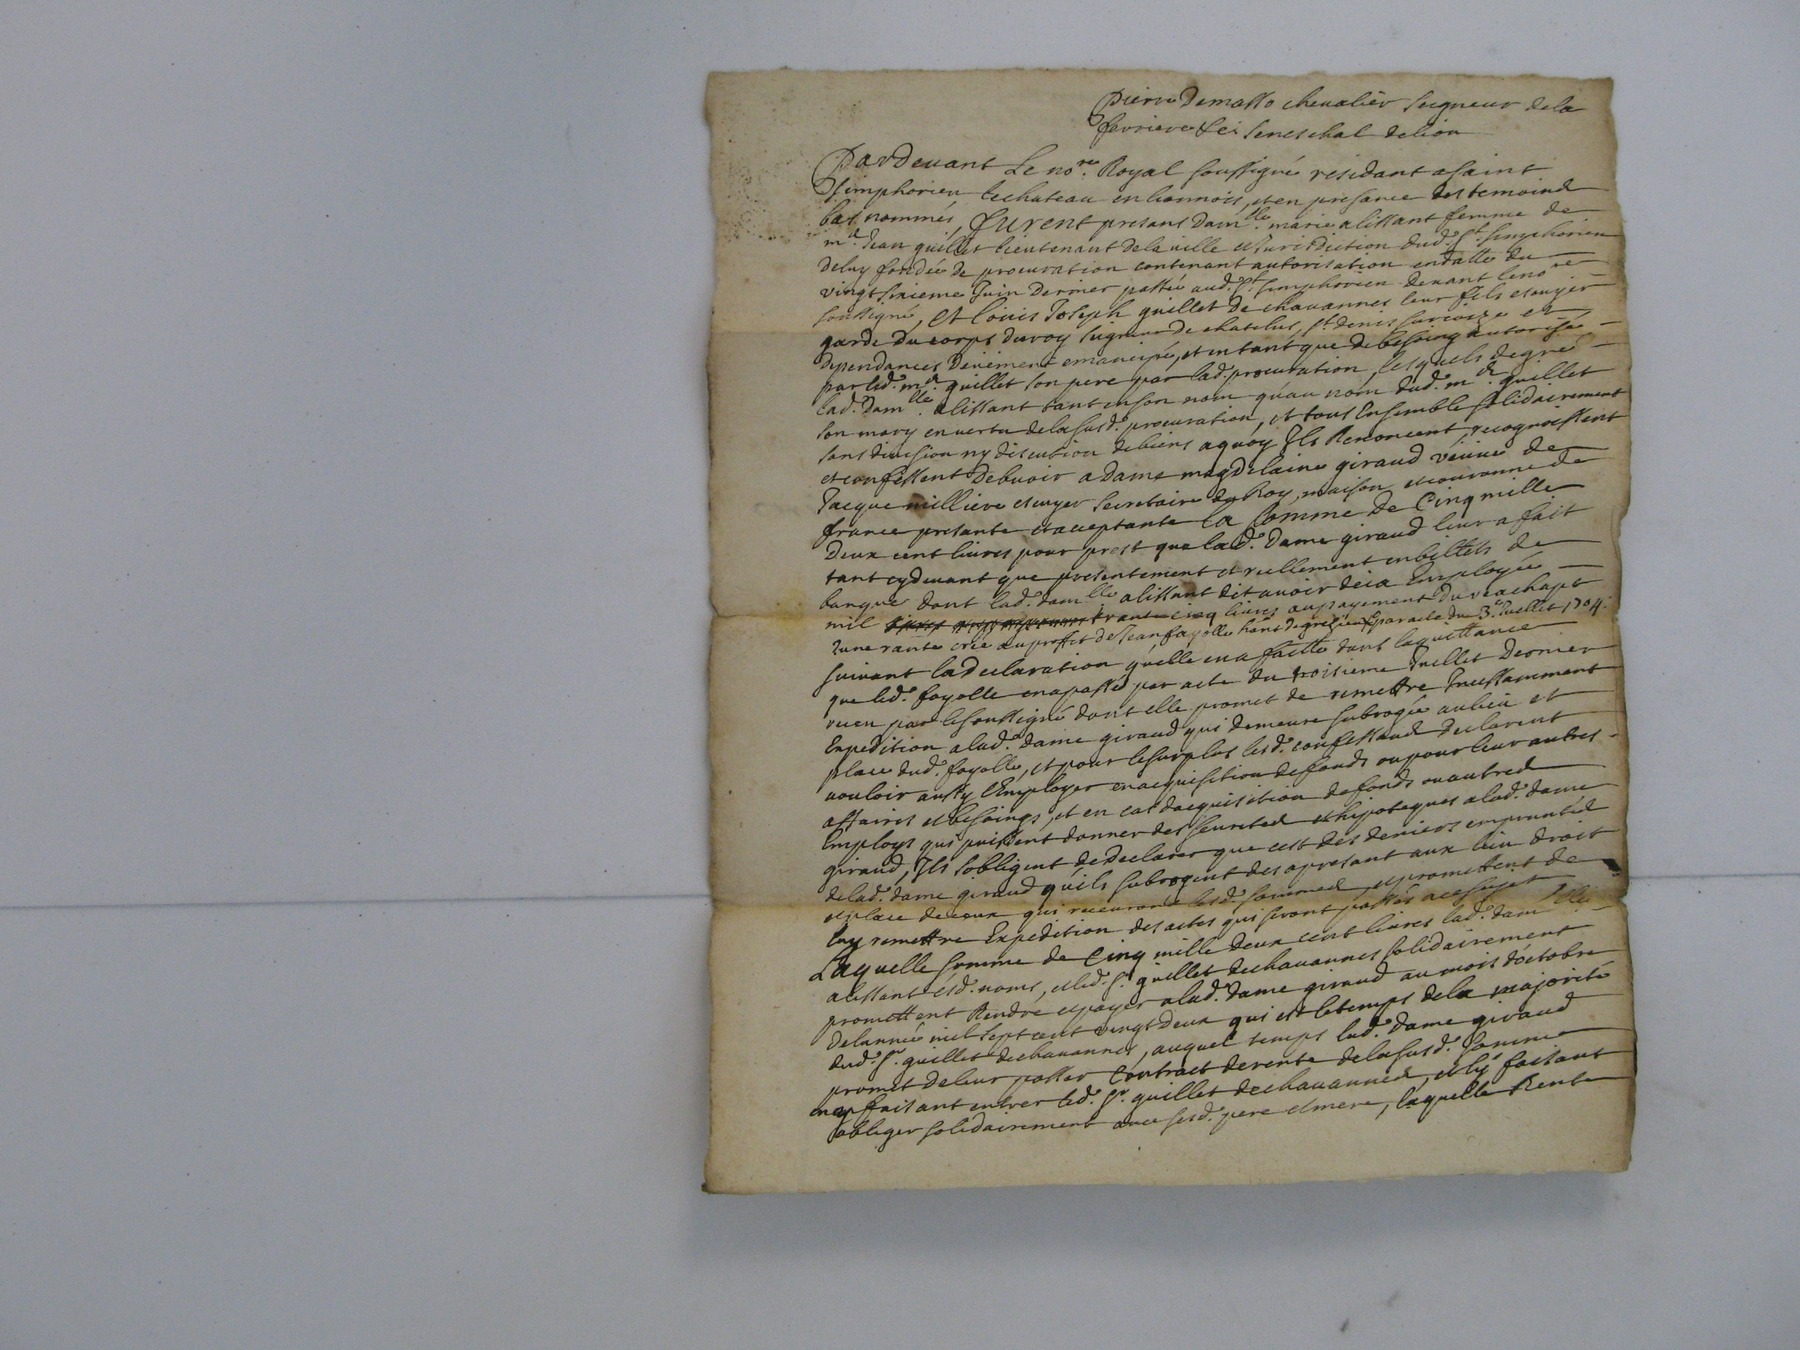 Pierre Demasso chevalier Seigneur dela
ferriere & Seneschal delion
Pardevant Le no.re Royal soussigné residant a saint
Simphorien lechateau en lionnois, et en presance des temoins
bas nommés, furent presans Dam.lle marie alissant femme de
m.e Jean guillet lieutenant dela ville et Jurisdiction dud. S.t simphorien
deluy fondée de procuration contenant autorisation en datte du
vingt sixieme Juin dernier passée aud. S.t simphorien devant leno.re
soussigné, et louis Joseph guillet de chavannes leur fils escuyer
garde du corps du roy seigneur de chatelus, S.t denis et
dependances deuement emancipé, et en tant que de besoing autorisé
par led. m.e guillet son pere par lad. procuration, lesquels de gré
lad. dam.lle alissant tant en son nom qu'au nom dud. m.e guillet
son mary en vertu dela susd. procuration, et tous Ensemble solidairement
sans division ny discution de biens a quoy Ils Renoncent, recognoissent
et confessent debvoir a Dame magdelaine giraud veuve de
Jacque milliere escuyer secretaire du Roy, maison et couronne de
france presante et acceptante la somme de Cinq mille
deux cent livres pour prest que lad. dame giraud leur a fait
tant cydevant que presentement et reellement en billets de
banque dont lad. dam.lle alissant dit avoir deia Employée
mil trante cinq livres au payement du reachapt
dune rante crée au proffit de Jean fayolle par acte du 3.e Juillet 1704.
suivant la declaration qu'elle en a faitte dans la quittance
que led. fayolle en a passé par acte du troisieme Juillet dernier
receu par le soussigné dont elle promet de remettre Incessamment
Expedition a lad. dame giraud qui demeure subrogée au lieu et
place dud. fayolle, et pour le surplus lesd. confessans declarent
vouloir aussy l'Employer en acquisition de fonds ou pour leur autres
affaires et besoings, et en cas d'acquisition de fonds ou autres
Employs qui puissent donner des seuretes et hipoteques a lad. dame
giraud, Ils s'obligent de declarer que cest des deniers empruntés
de lad. dame giraud qu'ils subrogent des apresant aux lieu droit
et place de ceux qui recevront lesd. sommes, et promettent de
luy remettre Expedition des actes qui seront passés a ce sujet
Laquelle somme de Cinq mille deux cent livres lad. dam.lle
alissant esd. noms, et led. S.r guillet de chavannes solidairement
promettent Rendre et payer a lad. dame giraud au mois d'octobre
de l'année mil sept cent vingt deux qui est le temps de la majorité
dud. S.r guillet de chavannes, auquel temps lad. dame giraud
promet de leur passer Contract de rente de la susd. somme
en y faisant entrer led. S.r guillet de chavannes, et le faisant
obliger solidairement avec sesd. pere et mere, laquelle Rente